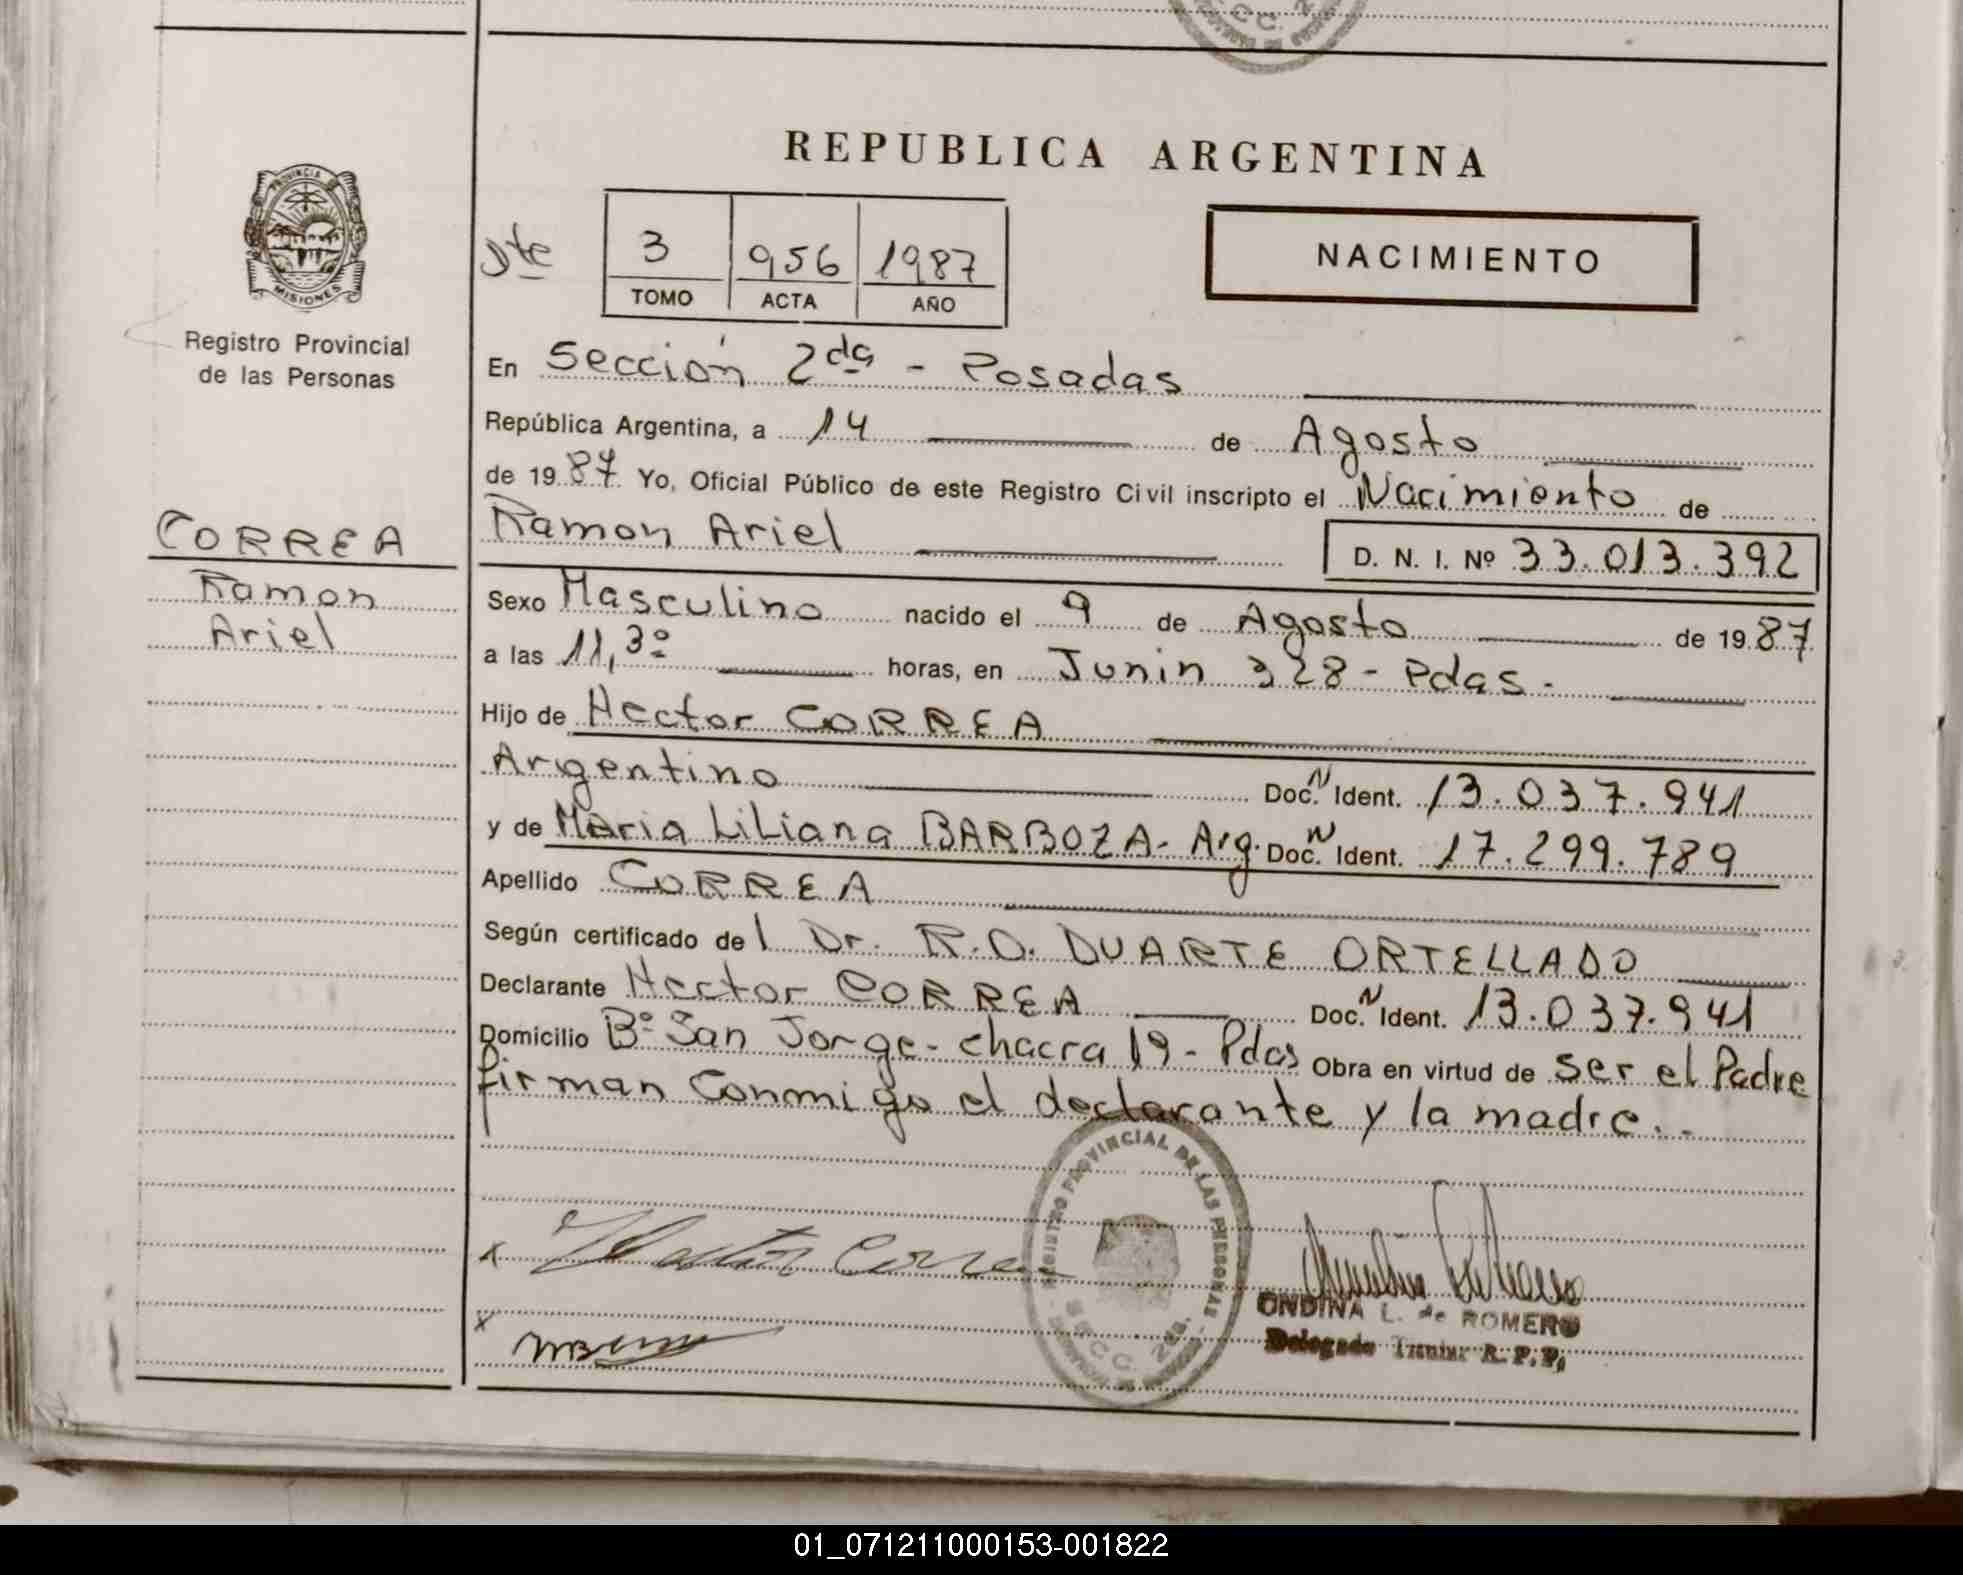 REPUBLICA ARGENTINA
PROVINCIA DE
MISIONES
Registro Provincial
de las Personas
Dte
3 956 1987
TOMO ACTA AÑO
NACIMIENTO
En Sección 2da - Posadas
República Argentina, a 14 de Agosto
de 1987 Yo, Oficial Público de este Registro Civil inscripto el Nacimiento de
CORREA
Ramon
Ariel
Ramon Ariel D. N. I. Nº 33.013.392
Sexo Masculino nacido el 9 de Agosto de 1987
a las 11,3º horas, en Junin 328 - Pdas.
Hijo de Hector CORREA
Argentino Doc. N Ident. 13.037.941
y de Maria Liliana BARBOZA - Arg. Doc. N Ident. 17.299.789
Apellido CORREA
Según certificado del Dr. R.O. DUARTE ORTELLADO
Declarante Hector CORREA Doc. N Ident. 13.037.941
Domicilio Bº San Jorge - chacra 19 - Pdas Obra en virtud de ser el Padre
firman conmigo el declarante y la madre..
REGISTRO PROVINCIAL DE LAS PERSONAS
SECC. 2da.
x Hector Correa
x
ONDINA L. de ROMERO
Delegada Titular R.P.P.
01_071211000153-001822